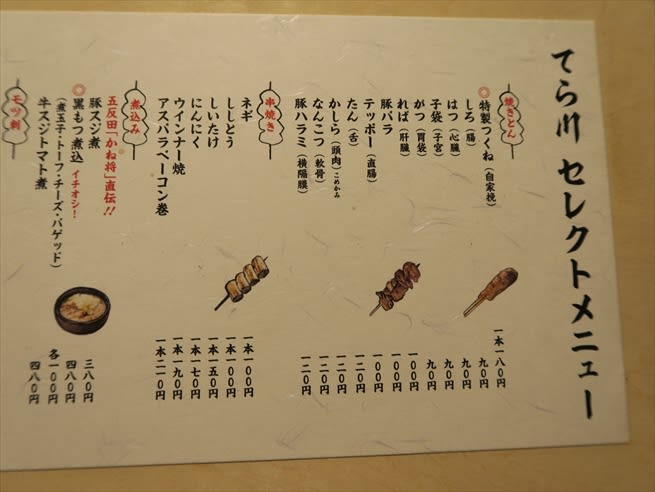 てら川 セレクトメニュー
焼きとん
◎特製つくね（自家挽） 一本一八〇円
しろ（腸） 九〇円
はつ（心臓） 九〇円
子袋（子宮） 九〇円
がつ（胃袋） 九〇円
れば（肝臓） 一〇〇円
豚バラ 一〇〇円
テッポー（直腸） 一〇〇円
たん（舌） 一二〇円
かしら（頭肉）こめかみ 一二〇円
なんこつ（軟骨） 一二〇円
豚ハラミ（横隔膜） 一二〇円
串焼き
ネギ 一本一〇〇円
ししとう 一本一〇〇円
しいたけ 一本一五〇円
にんにく 一本一七〇円
ウインナー焼 一本一九〇円
アスパラベーコン巻 一本二一〇円
煮込み
五反田「かね将」直伝!!
豚スジ煮 三八〇円
◎黒もつ煮込 イチオシ! 四八〇円
（煮玉子・トーフ・チーズ・バゲッド） 各一〇〇円
牛スジトマト煮 四八〇円
モツ刺